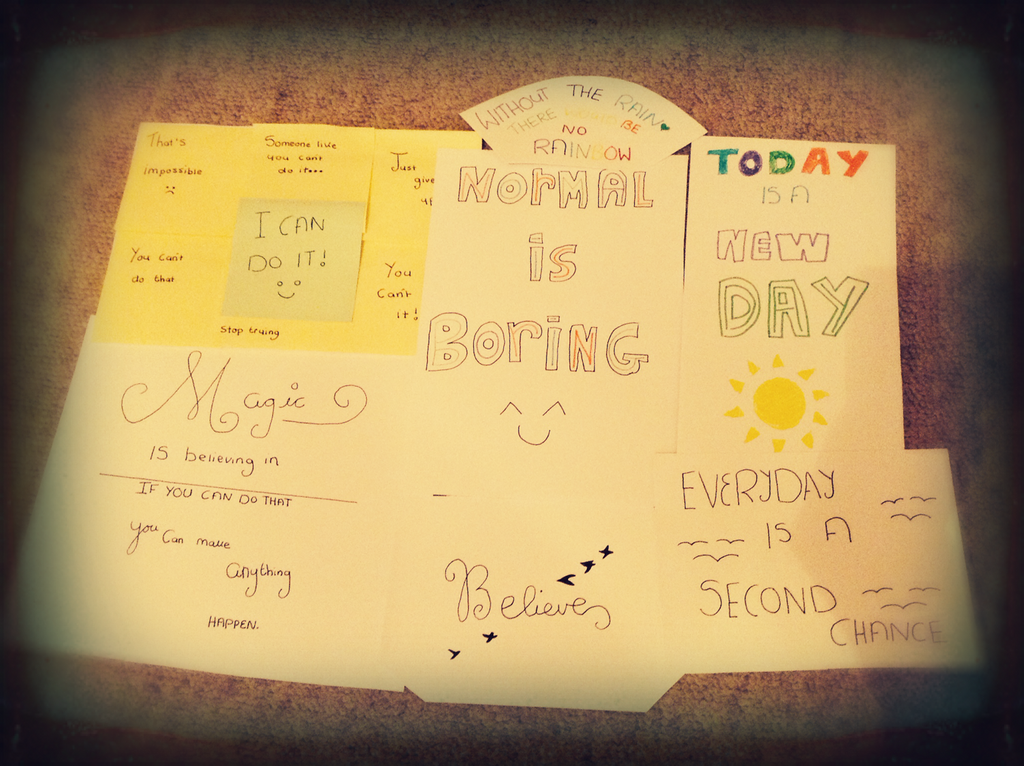 WITHOUT THE RAIN
THERE WOULD BE
NO
RAINBOW
That's
impossible
Someone like
you can't
do it...
Just
give
I CAN
DO IT!
You can't
do that
You
Can't
it!
Stop trying
NORMAL
is
BORING
TODAY
IS A
NEW
DAY
Magic
IS believing in
IF YOU CAN DO THAT
you can make
anything
HAPPEN.
Believe
EVERYDAY
IS A
SECOND
CHANCE